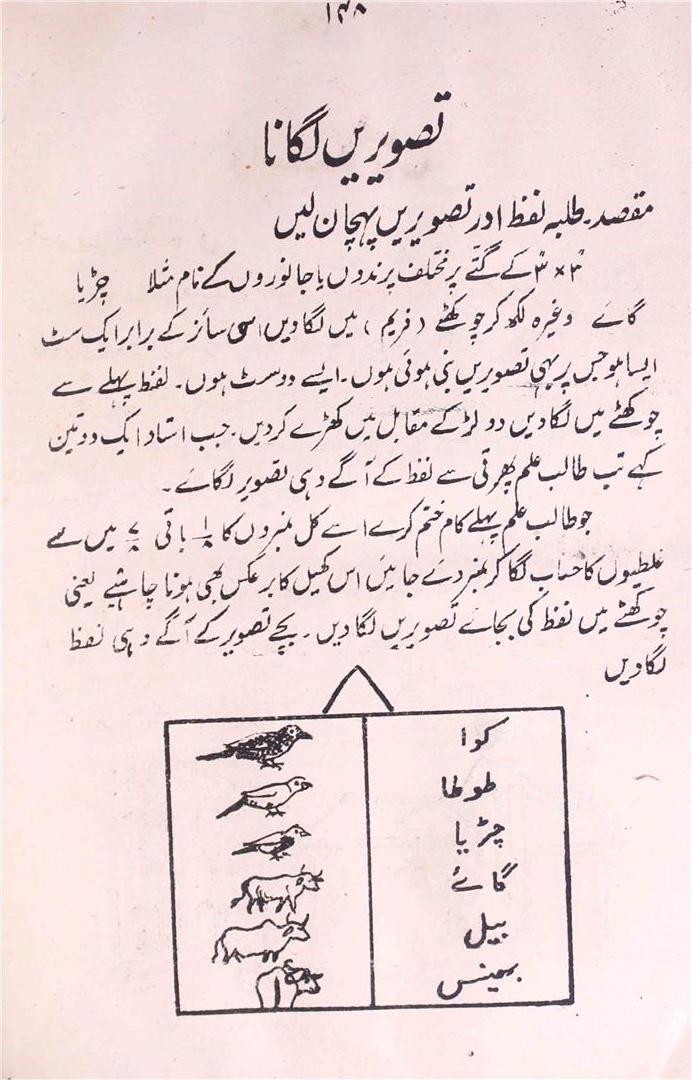 ۱۴۸
تصویریں لگانا
مقصد۔ طلبہ لفظ اور تصویریں پہچان لیں
"۳ × "۳ کے گتے پر مختلف پرندوں یا جانوروں کے نام مثلا چڑیا
گائے وغیرہ لکھ کر چوکھٹے (فریم) میں لگا دیں اسی سائز کے برابر ایک سٹ
ایسا ہو جس پر یہی تصویریں بنی ہوئی ہوں۔ ایسے دو سٹ ہوں۔ لفظ پہلے سے
چوکھٹے میں لگا دیں دو لڑکے مقابل میں کھڑے کر دیں۔ جب استاد ایک دو تین
کہے تب طالب علم پھرتی سے لفظ کے آگے وہی تصویر لگائے۔
جو طالب علم پہلے کام ختم کرے اسے کل نمبروں کا ۱/۸ باقی ۷/۸ میں سے
غلطیوں کا حساب لگا کر نمبر دئے جائیں اس کھیل کا بر عکس بھی ہونا چاہئیے یعنی
چوکھٹے میں لفظ کی بجائے تصویریں لگا دیں۔ بچے تصویر کے آگے وہی لفظ
لگا دیں
کوا
طوطا
چڑیا
گائے
بیل
بھینس